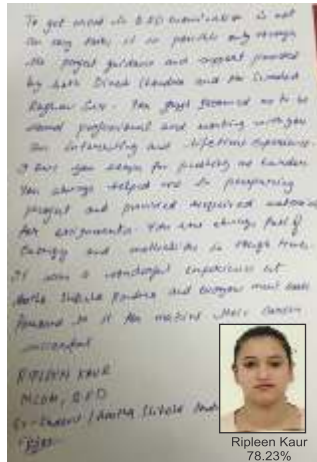 To get ahead in B.Ed examination is not
an easy task, it is possible only through
the proper guidance and support provided
by both Dinesh Chandra and
Raghav Sir. You guys groomed me to be
professional and working with you
an interesting and lifetime experience.
I owe you for pushing me harder
You always helped me in preparing
project and provided required material
for assignments. You are always full of
Energy and motivation in tough times.
It was a wonderful experience at
and everyone must look
forward to it for making their career
successful
RIPLEEN KAUR
M.COM, B.ED
Ex-Student
Ripleen Kaur
78.23%